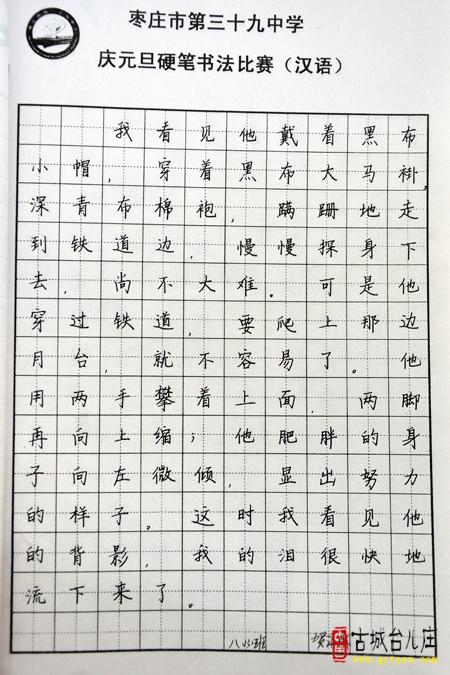 枣庄市第三十九中学
庆元旦硬笔书法比赛（汉语）
我看见他戴着黑布
小帽，穿着黑布大马褂，
深青布棉袍，蹒跚地走
到铁道边，慢慢探身下
去，尚不大难。可是他
穿过铁道，要爬上那边
月台，就不容易了。他
用两手攀着上面，两脚
再向上缩；他肥胖的身
子向左微倾，显出努力
的样子。这时我看见他
的背影，我的泪很快地
流下来了。
古城台儿庄